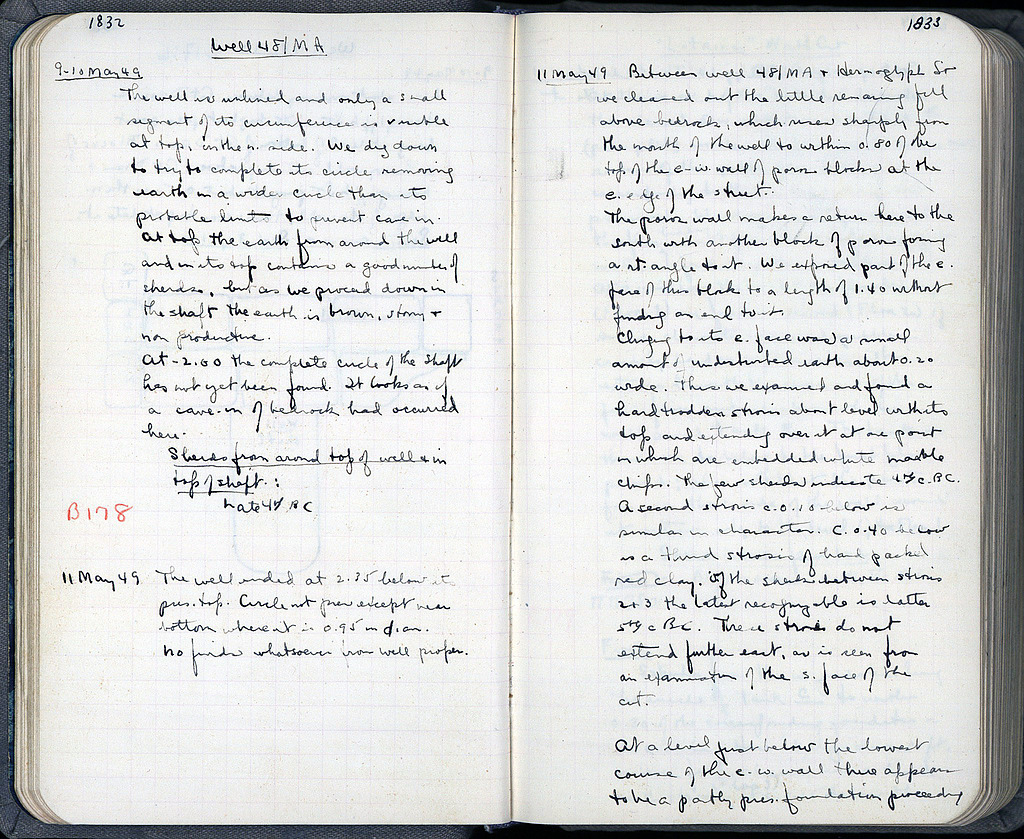 1832
Well 48/MA
9-10 May 49
The well is unlined and only a small
segment of its circumference is visible
at top, in the n. side. We dig down
to try to complete its circle removing
earth in a wider circle than its
probable limits to prevent cave in.
At top the earth from around the well
and in its top contains a good number of
sherds, but as we proceed down in
the shaft the earth is brown, stony +
non productive.
At -2.00 the complete circle of the shaft
has not yet been found. It looks as if
a cave-in of bedrock had occurred
here.
Sherds from around top of well & in
top of shaft:
Late 4th BC
B178
11 May 49 The well ended at 2.35 below its
pres. top. Circle not pres. except near
bottom where it is 0.95 m diam.
No finds whatsoever from well proper.
1833
11 May 49 Between well 48/MA + Hermoglyph St
we cleaned out the little remaining fill
above bedrock, which rises sharply from
the mouth of the well to within 0.80 of the
top of the e-w. wall of poros blocks at the
e. edge of the street.
The poros wall makes a return here to the
south with another block of poros forming
a rt. angle to it. We exposed part of the e.
face of this block to a length of 1.40 without
finding an end to it.
Clinging to its e. face was a small
amount of undisturbed earth about 0.20
wide. This we examined and found a
hard trodden strosis about level with its
top and extending over it at one point
in which are embedded white marble
chips. The few sherds indicate 4th c. BC.
A second strosis c. 0.10 below is
similar in character. C. 0.40 below
is a third strosis of hard packed
red clay. Of the sherds between strosis
2 + 3 the latest recognizable is latter
5th c BC. These strosis do not
extend further east, as is seen from
an examination of the s. face of the
cut.
At a level just below the lowest
course of the e-w. wall there appears
to be a partly pres. foundation proceeding